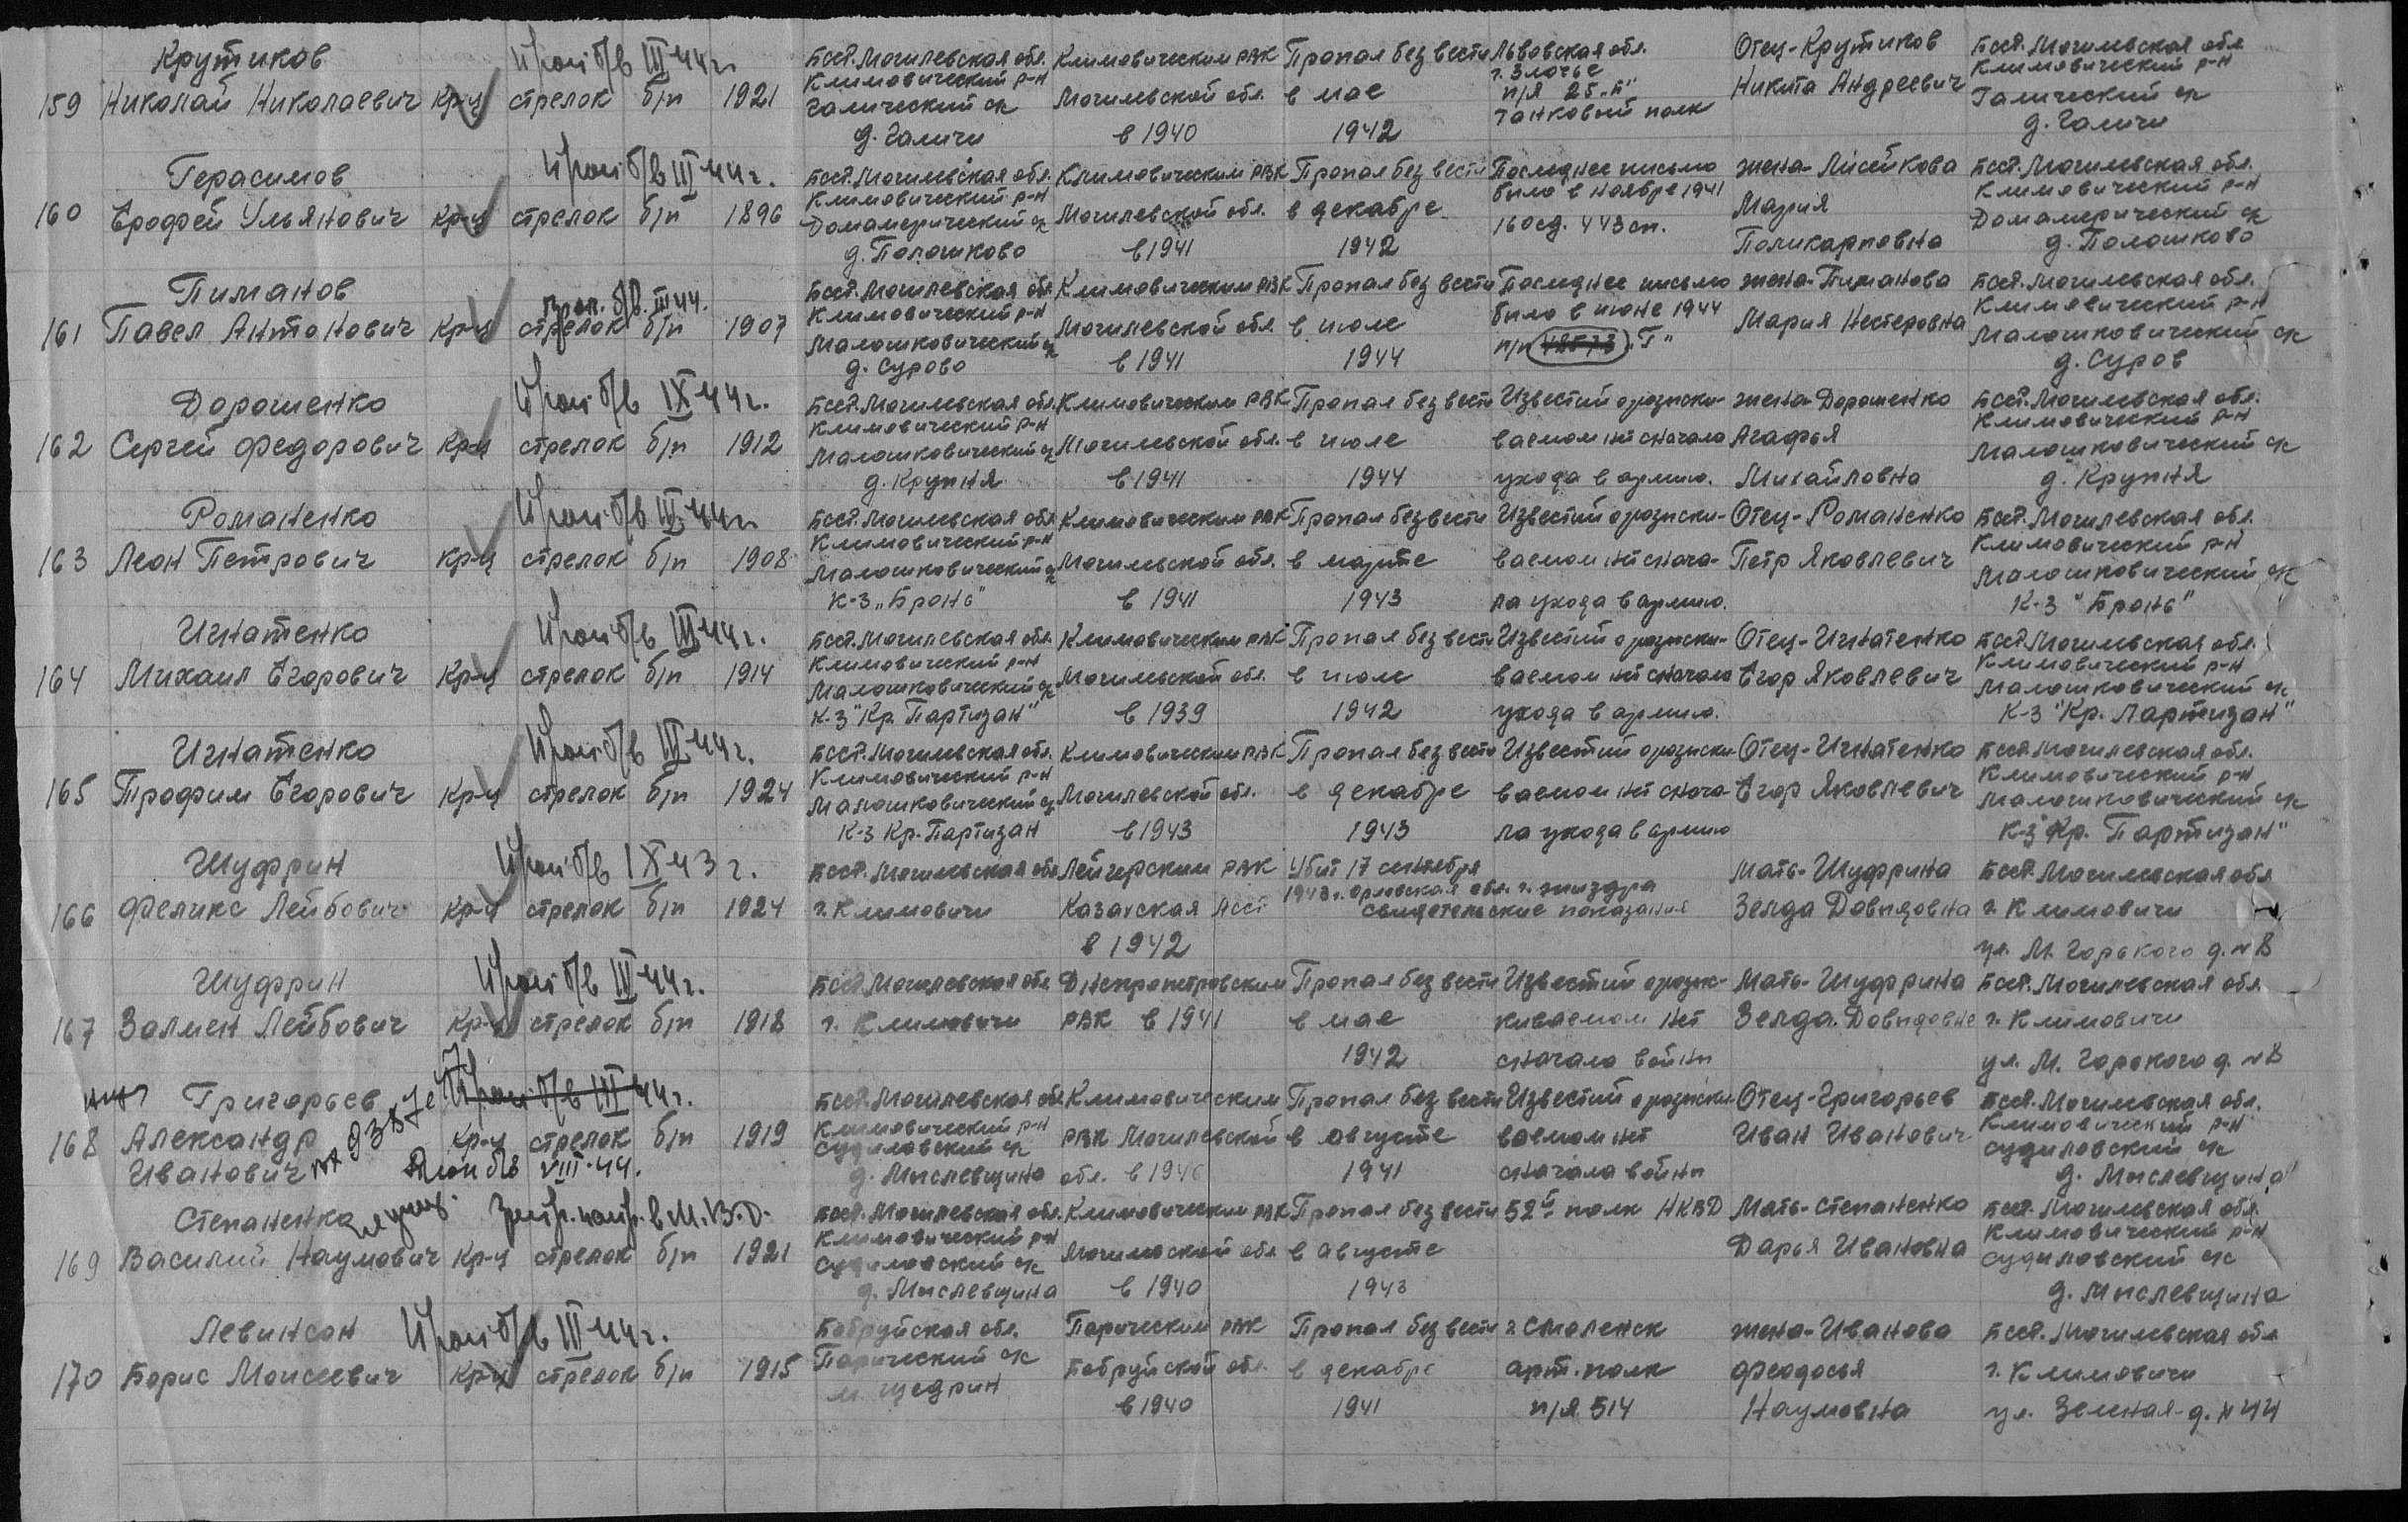 Крутиков
Проп б/в III 44 г.
159 Николай Николаевич Кр-ц стрелок б/п 1921
БССР. Могилевская обл.
Климовический р-н
Галический с/с
д. Галичи
Климовическим РВК
Могилевской обл.
в 1940
Пропал без вести
в мае
1942
Львовская обл.
п/я 25 "Б"
танковый полк
Отец-Крутиков
Никита Андреевич
БССР. Могилевская обл
Климовический р-н
Галический с/с
д. Галичи
Герасимов
Проп б/в III 44 г.
160 Ерофей Ульянович Кр-ц стрелок б/п 1896
БССР. Могилевская обл.
Климовический р-н
Домамерический с/с
д. Полошково
Климовическим РВК
Могилевской обл.
в 1941
Пропал без вести
в декабре
1942
Последнее письмо
было в ноябре 1941
160 сд. 443 сп.
жена-Лисейкова
Мария
Поликарповна
БССР. Могилевская обл.
Климовический р-н
Домамерический с/с
д. Полошково
Пиманов
Проп. б/в. III 44.
161 Павел Антонович Кр-ц стрелок б/п 1907
БССР. Могилевская обл
Климовический р-н
Малошковический с/с
д. Сурово
Климовическим РВК
Могилевской обл
в 1941
Пропал без вести
в июле
1944
Последнее письмо
было в июне 1944
п/п "Г"
жена-Пиманова
Мария Нестеровна
БССР. Могилевская обл.
Климовический р-н
Малошковический с/с
д. Суров
Дорошенко
Проп б/в IX 44 г.
162 Сергей Федорович Кр-ц стрелок б/п 1912
БССР. Могилевская обл.
Климовический р-н
Малошковический с/с
д. Крупня
Климовическим РВК
Могилевской обл.
в 1941
Пропал без вести
в июле
1944
Известий о розыски-
ваемом нет сначала
ухода в армию.
жена-Дорошенко
Агафья
Михайловна
БССР. Могилевская обл.
Климовический р-н
Малошковический с/с
д. Крупня
Романенко
Проп б/в III 44 г.
163 Леон Петрович Кр-ц стрелок б/п 1908
БССР. Могилевская обл
Климовический р-н
Малошковический с/с
К-з "Бронь"
Климовическим РВК
Могилевской обл.
в 1941
Пропал без вести
в марте
1943
Известий о розыски-
ваемом нет снача-
ла ухода в армию.
Отец-Романенко
Петр Яковлевич
БССР. Могилевская обл.
Климовический р-н
Малошковический с/с
К-з "Бронь"
Игнатенко
Проп б/в III 44 г.
164 Михаил Егорович Кр-ц стрелок б/п 1914
БССР. Могилевская обл.
Климовический р-н
Малошковический с/с
К-з "Кр. Партизан"
Климовическим РВК
Могилевской обл.
в 1939
Пропал без вести
в июле
1942
Известий о розыски-
ваемом нет сначала
ухода в армию.
Отец-Игнатенко
Егор Яковлевич
БССР. Могилевская обл.
Климовический р-н
Малошковический с/с
К-з "Кр. Партизан"
Игнатенко
Проп б/в III 44 г.
165 Трофим Егорович Кр-ц стрелок б/п 1924
БССР. Могилевская обл.
Климовический р-н
Малошковический с/с
К-з Кр. Партизан
Климовическим РВК
Могилевской обл.
в 1943
Пропал без вести
в декабре
1943
Известий о розыски
ваемом нет снача
ла ухода в армию
Отец-Игнатенко
Егор Яковлевич
БССР. Могилевская обл.
Климовический р-н
Малошковический с/с
К-з "Кр. Партизан"
Шуфрин
Проп б/в IX 43 г.
166 Феликс Лейбович Кр-ц стрелок б/п 1924
БССР. Могилевская обл
г. Климовичи
РВК
в 1942
Убит 17 сентября
1943 г. Орловская обл. г. Жиздра
свидетельские показания
Мать-Шуфрина
Зелда Довидовна
БССР. Могилевская обл
г. Климовичи
ул. М. Горького д. № 8
Шуфрин
Проп б/в III 44 г.
167 Залмен Лейбович Кр-ц стрелок б/п 1918
БССР. Могилевская обл.
г. Климовичи
Днепропетровским
РВК в 1941
Пропал без вести
в мае
1942
Известий о розыс-
киваемом нет
сначала войны
Мать-Шуфрина
Зелда Довидовна
БССР. Могилевская обл.
г. Климовичи
ул. М. Горького д. № 8
Григорьев
Проп б/в III 44 г.
168 Александр Кр-ц стрелок б/п 1919
Иванович
б/в VIII 44.
БССР. Могилевская обл
Климовический р-н
Судиловский с/с
д. Мыслевщина
Климовическим
РВК Могилевской
обл. в 1940
Пропал без вести
в августе
1941
Известий о розыски
ваемом нет
сначала войны
Отец-Григорьев
Иван Иванович
БССР. Могилевская обл.
Климовический р-н
Судиловский с/с
д. Мыслевщина
Степаненко
в М.В.Д.
169 Василий Наумович Кр-ц стрелок б/п 1921
БССР. Могилевская обл.
Климовический р-н
Судиловский с/с
д. Мыслевщина
Климовическим РВК
Могилевской обл
в 1940
Пропал без вести
в августе
1943
52й полк НКВД
Мать-Степаненко
Дарья Ивановна
БССР. Могилевская обл.
Климовический р-н
Судиловский с/с
д. Мыслевщина
Левинсон
Проп б/в III 44 г.
170 Борис Моисеевич Кр-ц стрелок б/п 1915
Бобруйская обл.
Паричский с/с
м. Щедрин
Паричским РВК
Бобруйской обл.
в 1940
Пропал без вести
в декабре
1941
г. Смоленск
арт. полк
п/я 514
жена-Иванова
Феодосья
Наумовна
БССР. Могилевская обл
г. Климовичи
ул. Зеленая д. № 44